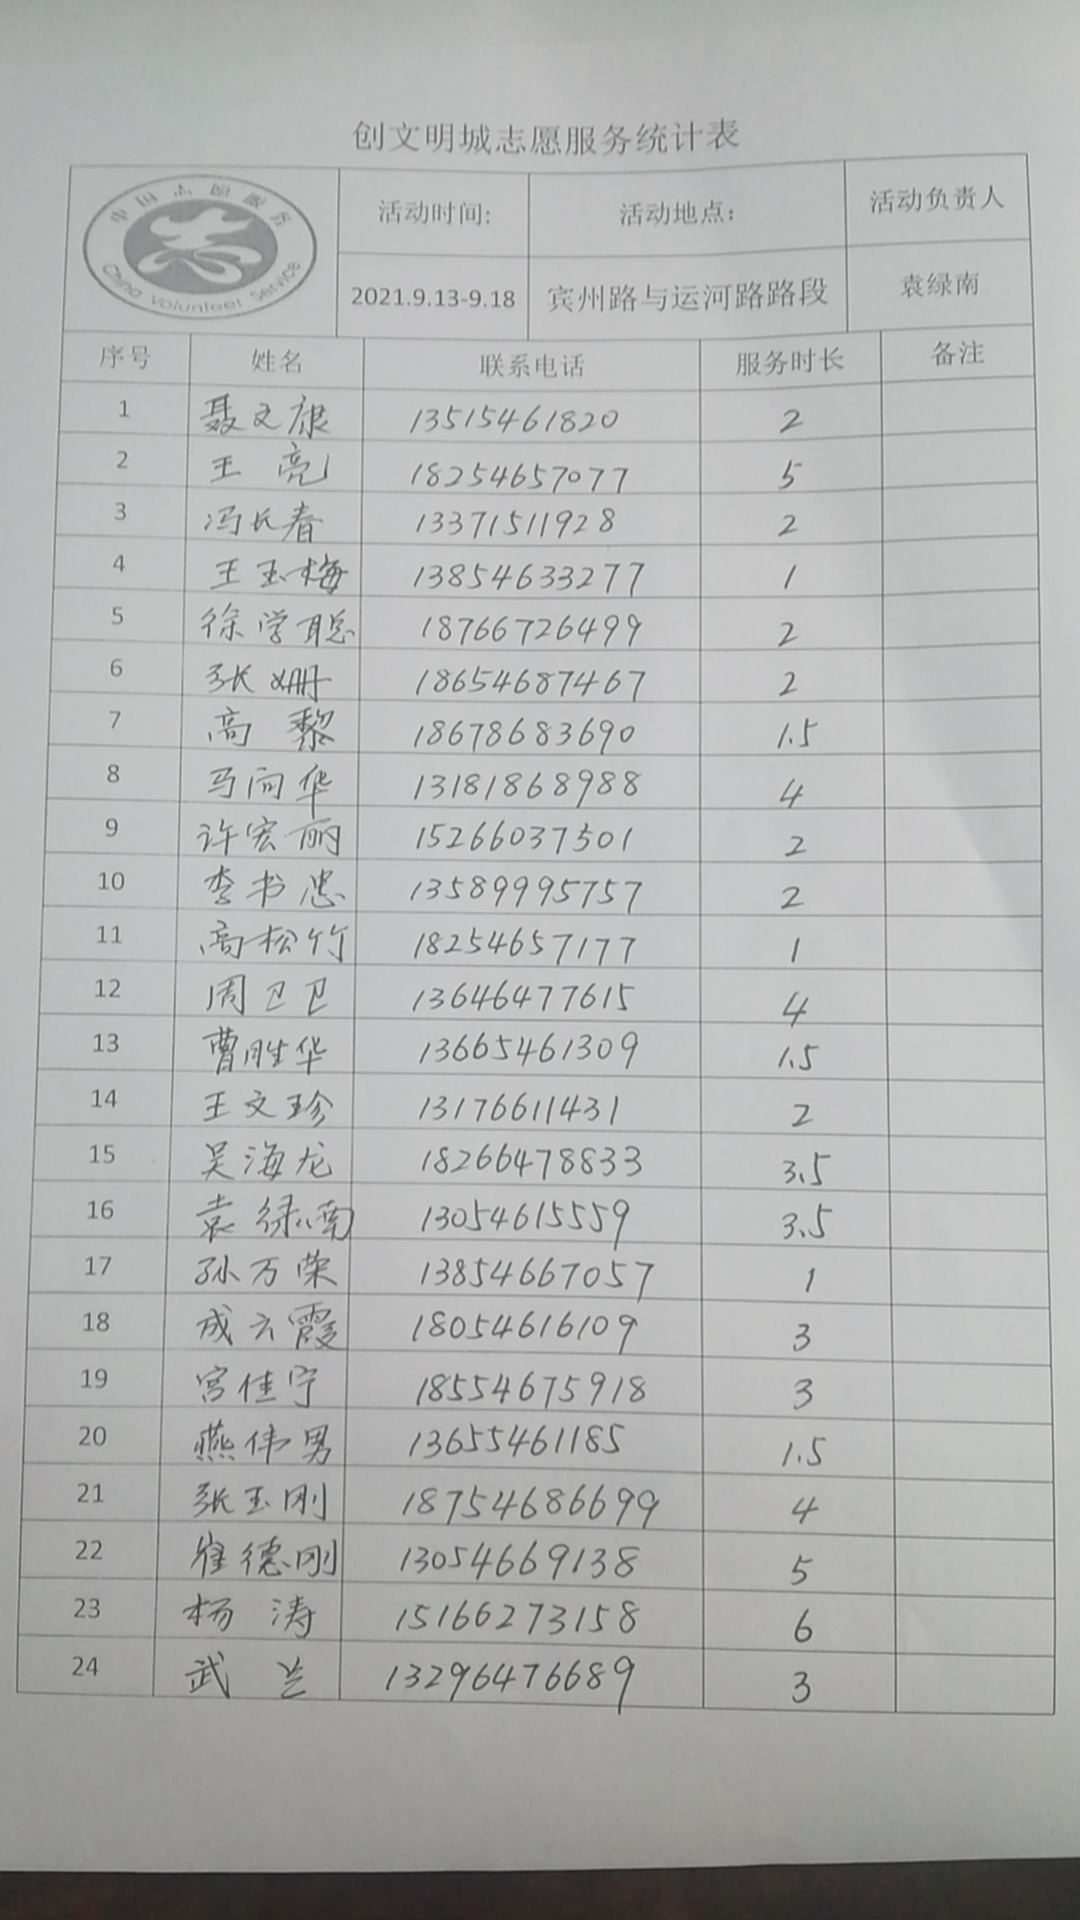 创文明城志愿服务统计表
中国志愿服务
China Volunteer Service
活动时间: 活动地点: 活动负责人
2021.9.13-9.18 宾州路与运河路路段 袁绿南
序号 姓名 联系电话 服务时长 备注
1 聂文康 13515461820 2
2 王亮 18254657077 5
3 冯长春 13371511928 2
4 王玉梅 13854633277 1
5 徐学聪 18766726499 2
6 张姗 18654687467 2
7 高黎 18678683690 1.5
8 马向华 13181868988 4
9 许宏丽 15266037501 2
10 李书忠 13589995757 2
11 高松竹 18254657177 1
12 周卫卫 13646477615 4
13 曹胜华 13665461309 1.5
14 王文珍 13176611431 2
15 吴海龙 18266478833 3.5
16 袁绿南 13054615559 3.5
17 孙万荣 13854667057 1
18 成云霞 18054616109 3
19 宫佳宁 18554675918 3
20 燕伟男 13655461185 1.5
21 张玉刚 18754686699 4
22 崔德刚 13054669138 5
23 杨涛 15166273158 6
24 武兰 13296476689 3